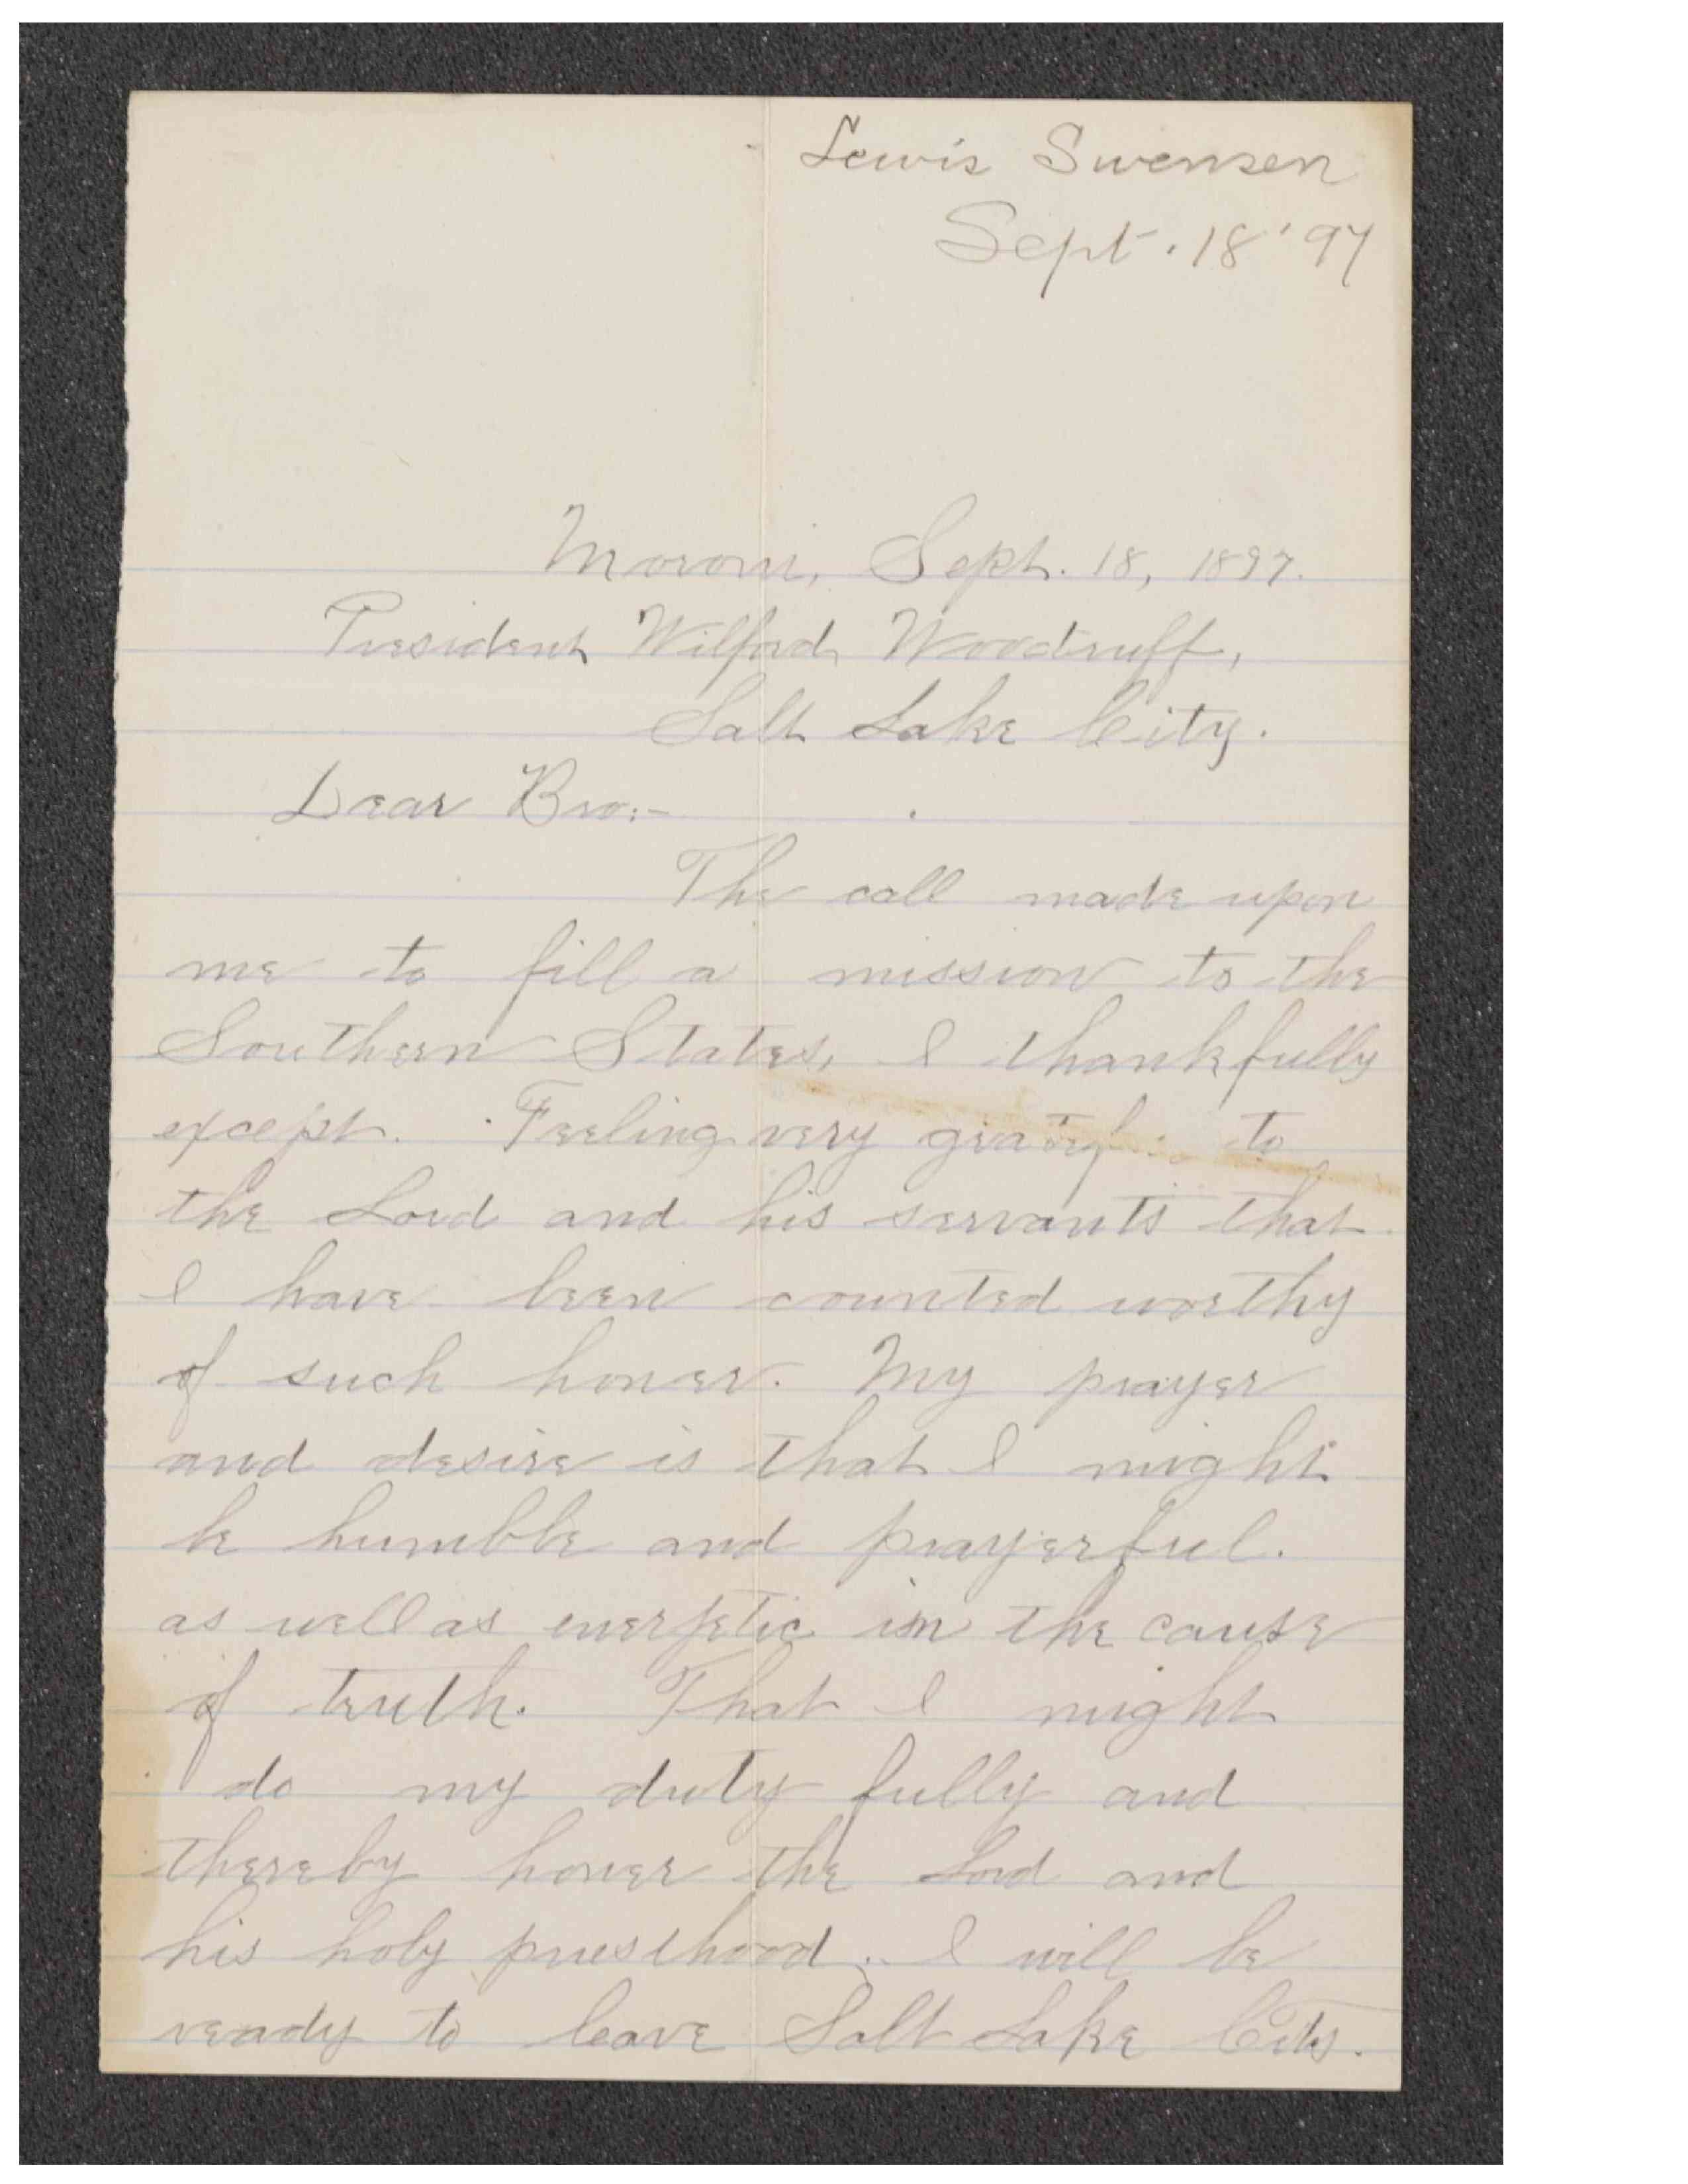 Lewis Swensen
Sept. 18 '97
Moroni, Sept. 18, 1897.
President Wilford Woodruff,
Salt Lake City.
Dear Bro:-
The call made upon
me to fill a mission to the
Southern States, I thankfully
except. Feeling very to
the Lord and his servants that
I have been counted worthy
of such honer. My prayer
and desire is that I might
be humble and prayerful.
as well as energetic in the cause
of truth. That I might
do my duty fully and
thereby honer the Lord and
his holy priesthood. I will be
ready to leave Salt Lake City.